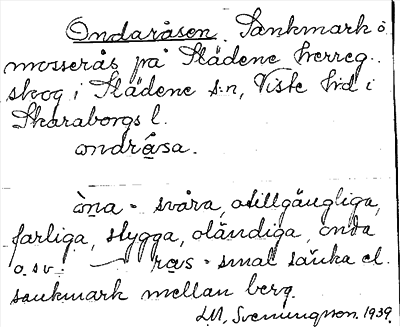 Ondaråsen. Sankmark o.
mosserås på Slädene herreg..
skog i Slädene s:n, Viste hd i
Skaraborgs l.
ondråsa.
òna - svåra, otillgängliga,
farliga, stygga, oländiga, onda
o. sv. — ravs - smal sänka el.
sankmark mellan berg.
LM, Svenungsson. 1939.